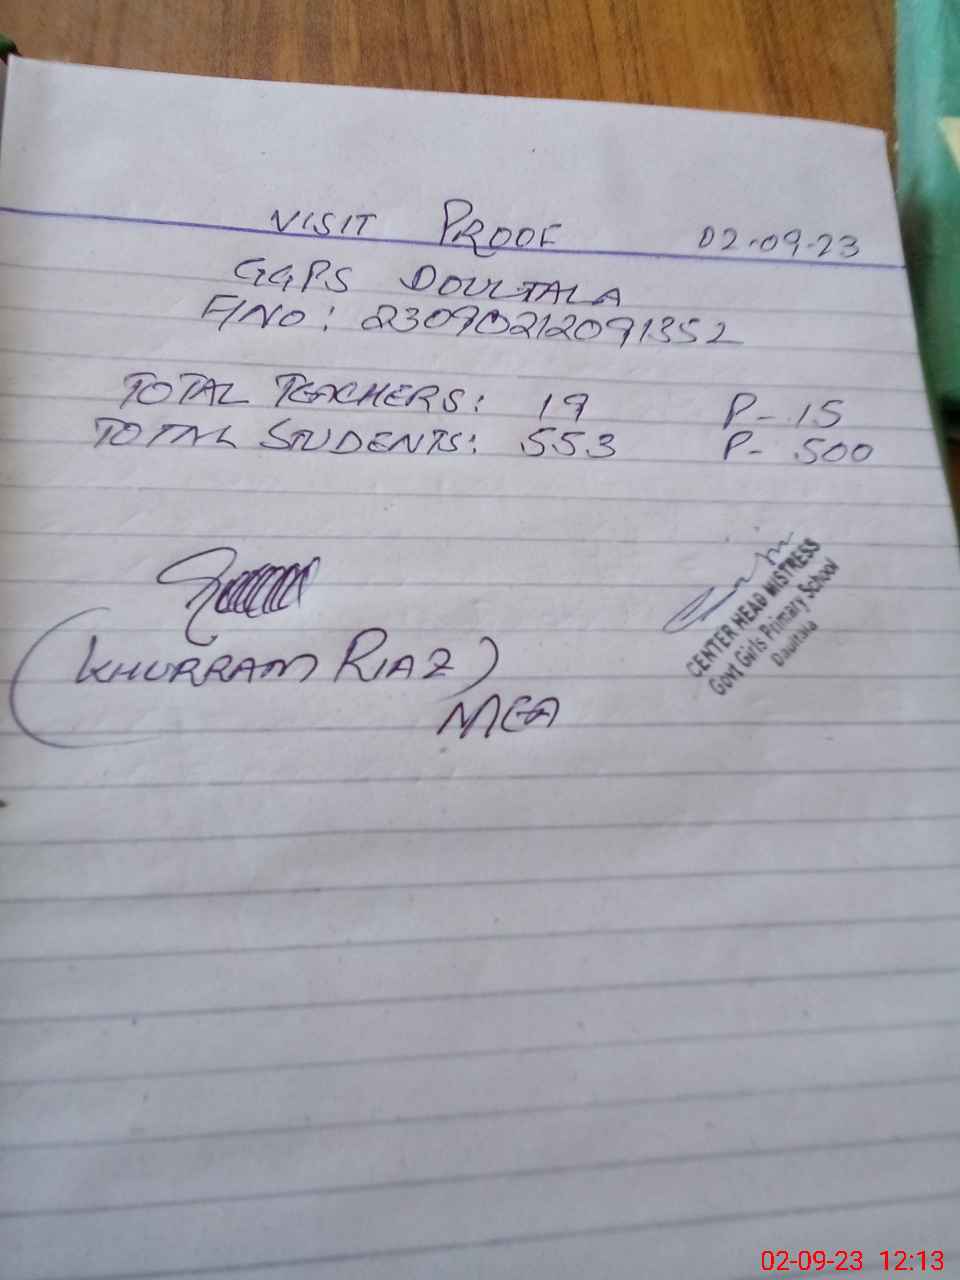 VISIT PROOF 02-09-23
GGPS DOULTALA
F/NO: 23090212091352
TOTAL TEACHERS: 19 P- 15
TOTAL STUDENTS: 553 P- 500
(KHURRAM RIAZ)
MEA
CENTER HEAD MISTRESS
Govt Girls Primary School
Daultala
02-09-23 12:13